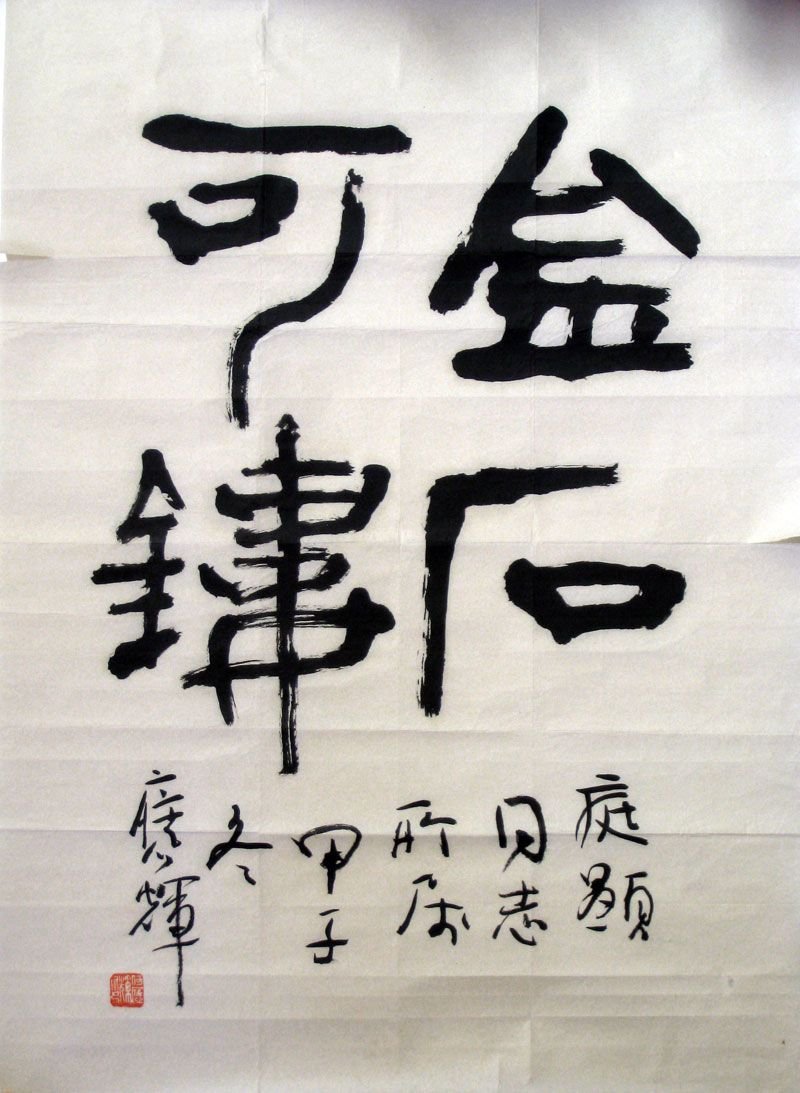 金石
可鏤
庭
同志
所属
甲子
冬
輝